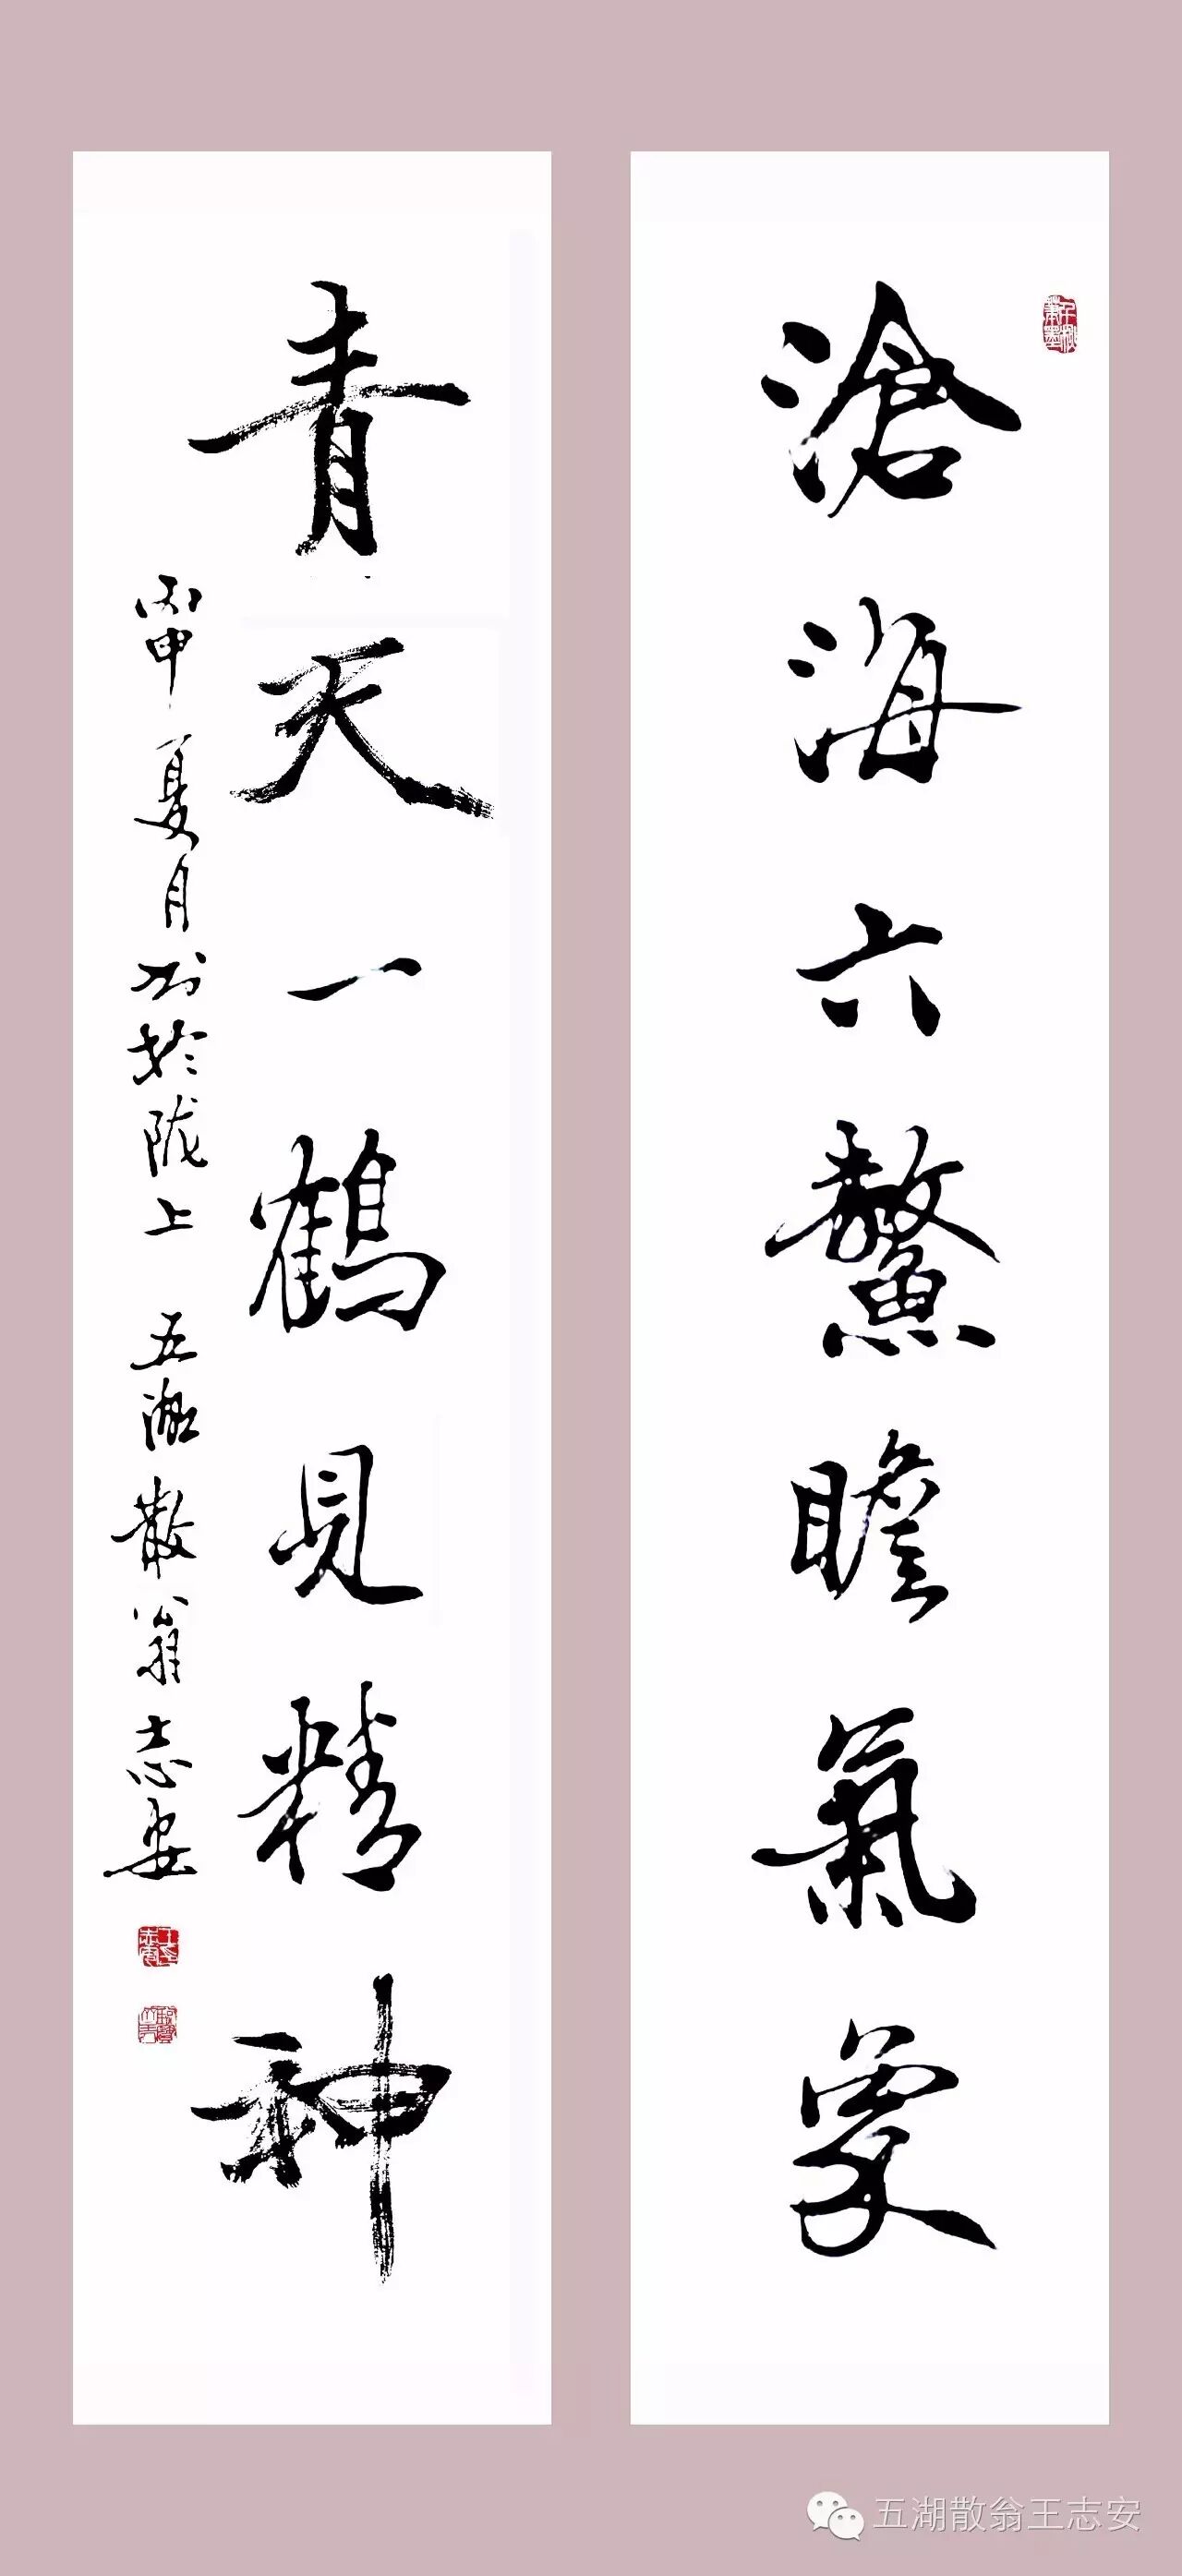 滄海六鰲瞻氣象
青天一鶴見精神
丙申夏月 於陇上 五湖散翁志安
五湖散翁王志安